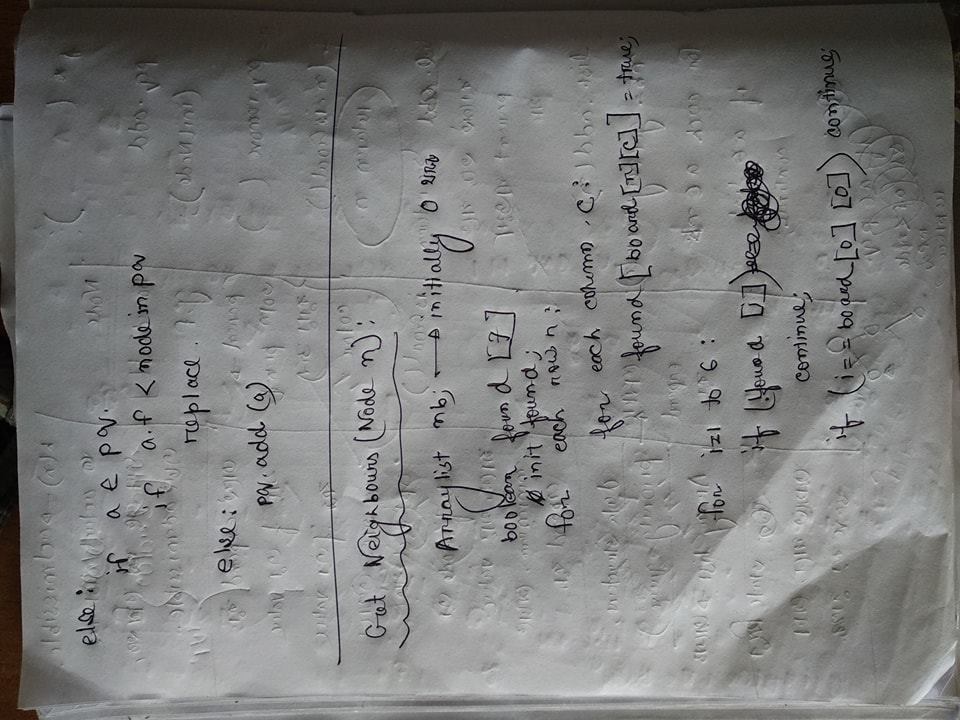 else:
if a ∈ pq.
if a.f < node in pq
replace.
else:
pq.add (a)
Get Neighbours (Node n):
Arraylist nb; → initially 0
boolean found [7]
init found;
for each row r:
for each column c:
found [board[r][c]] = true;
for i=1 to 6:
if (!found [i])
continue;
if (i == board [0] [0]) continue;